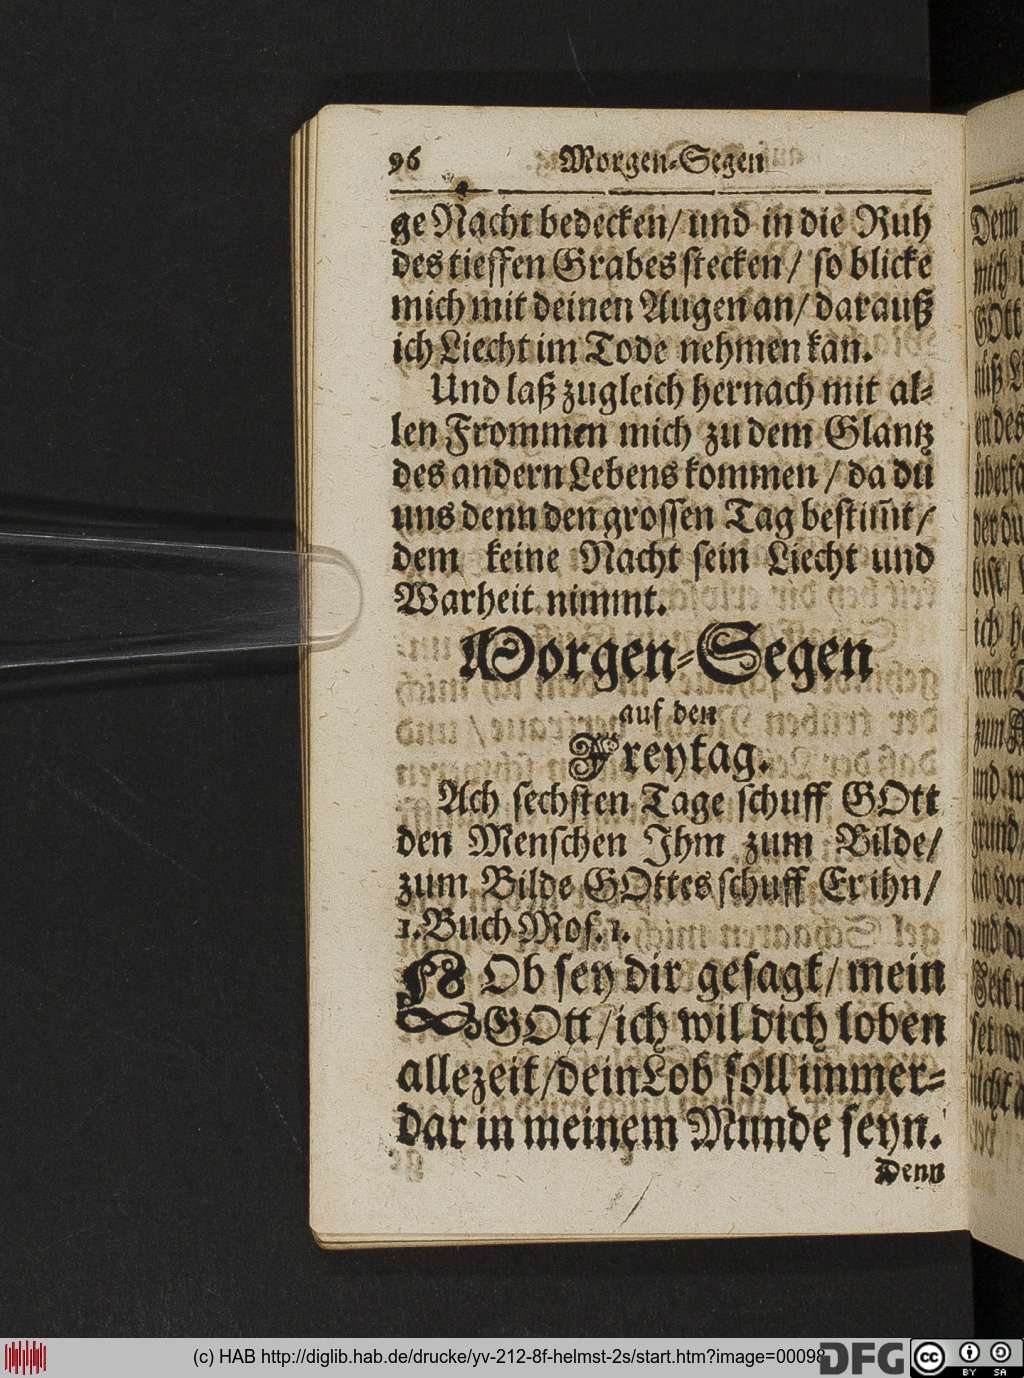 96 Morgen-Segen
ge Nacht bedecken/ und in die Ruh
des tieffen Grabes stecken/ so blicke
mich mit deinen Augen an/ darauß
ich Liecht im Tode nehmen kan.
Und laß zugleich hernach mit al-
len Frommen mich zu dem Glantz
des andern Lebens kommen / da du
uns denn den grossen Tag bestim̃t/
dem keine Nacht sein Liecht und
Warheit nimmt.
Morgen-Segen
auf den
Freytag.
Ach sechsten Tage schuff GOtt
den Menschen Ihm zum Bilde/
zum Bilde GOttes schuff Er ihn/
1. Buch Mos. 1.
LOb sey dir gesagt/ mein
GOtt/ ich wil dich loben
allezeit/ dein Lob soll immer-
dar in meinem Munde seyn.
Denn
Denn
mich
GOtt
en des
ich h
zum
und
grund/
an vor
und
nicht
(c) HAB http://diglib.hab.de/drucke/yv-212-8f-helmst-2s/start.htm?image=00098
DFG
cc BY SA